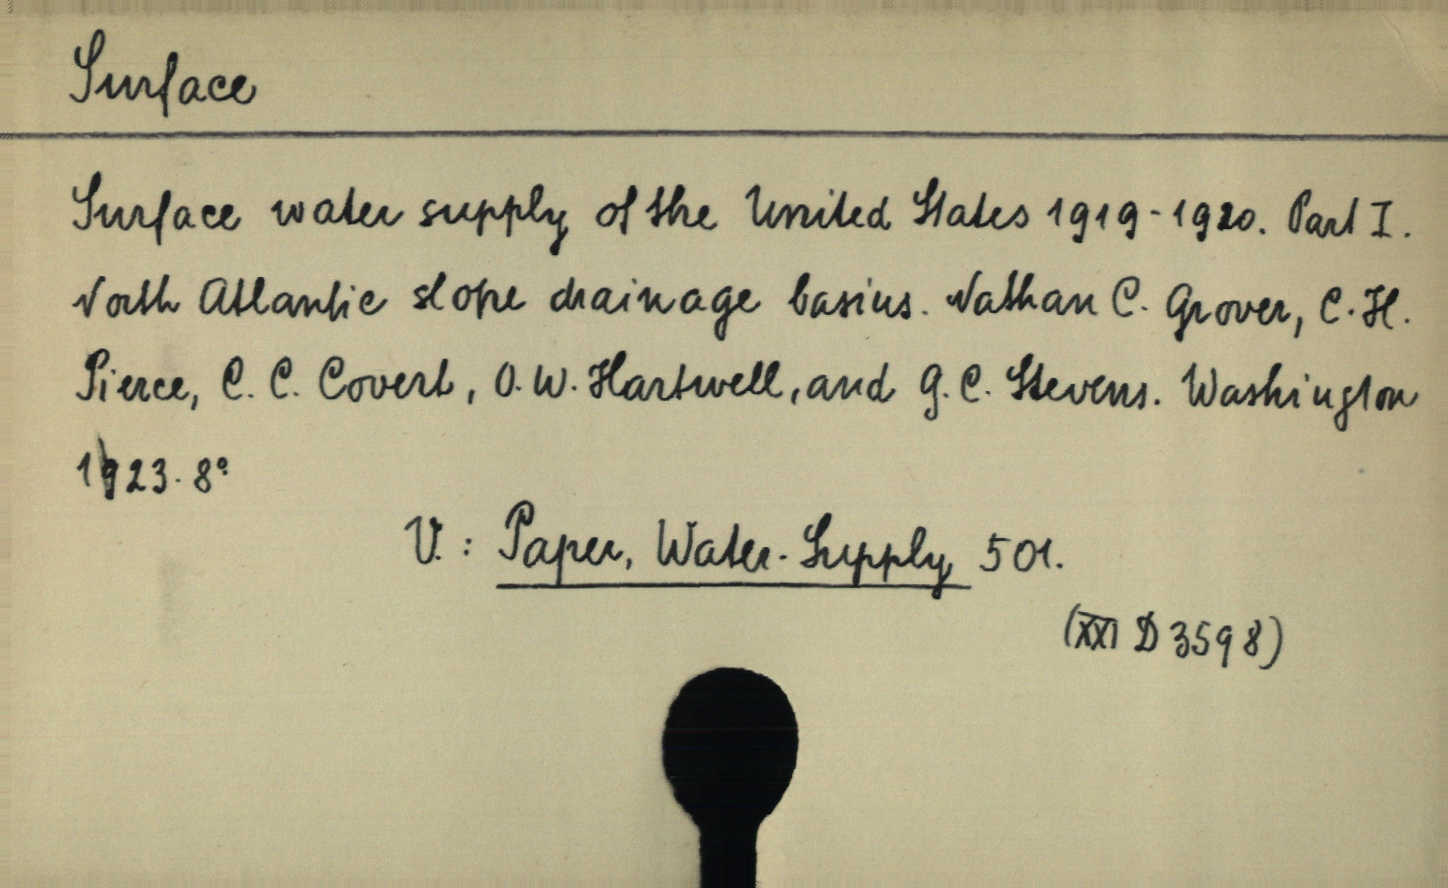 Surface
Surface water supply of the United States 1919-1920. Part I.
North Atlantic slope drainage basins. Nathan C. Grover, C. H.
Pierce, C. C. Covert, O. W. Hartwell, and G. C. Stevens. Washington
1923. 8°
V.: Paper, Water-Supply 501.
(XXI D 3598)